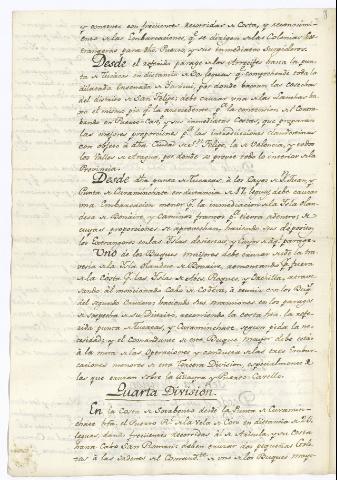 y continuo con frecuentes recorridas de Costa, y reconocimien
de las Embarcaciones, qe. se dirigen a las Colonias Ex
trangeras para dho. Puerto, y sus inmediatos Surgideros.
Desde el referido parage de los Arrecifes hasta la punta
de Tucacas en distancia de leguas, qe. comprehende toda la
dilatada Ensenada de Turiamo, por donde bajan las cosechas
del distrito de San Felipe, debe cruzar una de las Lanchas ba
xo el mismo pie qe. la antecedente
bando en Puerto Cavo. y sus inmediatas Costas, que preparan
las mejores proporciones pa. las introducciones clandestinas
con objeto a dha. Ciudad de Sn. Felipe, la de Valencia, y todos
los Valles de Aragua, por donde se provee todo lo interior de la
Provincia.
Desde dha. punta de Tucacas, a los Cayos de San Juan, y
Punta de Curamichate en distancia de 17 leguas, debe cruzar
una Embarcacion menor, pr. la inmediacion de la Isla Olan
desa de Bonaire, y Caminos francos pa. tierra adentro, de
cuyas proporciones se aprovechan, haciendo sus depositos
los Extrangeros en las Islas desiertas, y Cayos de aql. parage.
Uno de los Buques mayores debe cruzar desde la tra
vesia de la Isla Olandesa de Bonaire, remontando pr. fuera
de la Costa pr. las Islas de Aves, Roques, y Orchilla, atrave
sando al mencionado Cabo de Codera, a reunirse con los Buqs.
del segundo Crucero haciendo sus mansiones en los parages
de sospecha de su Distrito, recorriendo la costa hta. la refe
rida punta de Tucacas, y Curamichate, segun pida la ne
cesidad; y el Comandante de este Buque mayor debe estar
a la mira de las Operaciones y conducta de las tres Embar
caciones menores de esta tercera Division, especialmente de
las que cruzan sobre la Guayra y Puerto Cavello.
Quarta Division.
En la Costa de Sotavento desde la Punta de Curamu
chate hta. el Puerto Rl. de la Vela de Coro en distancia de
leguas, dando frecuentes recorridas a la de Aricula, y su Costa
hasta Cabo San Roman: deben cruzar dos pequeñas Gole
tas a las ordenes del Comandte. de uno de los Buques mayo